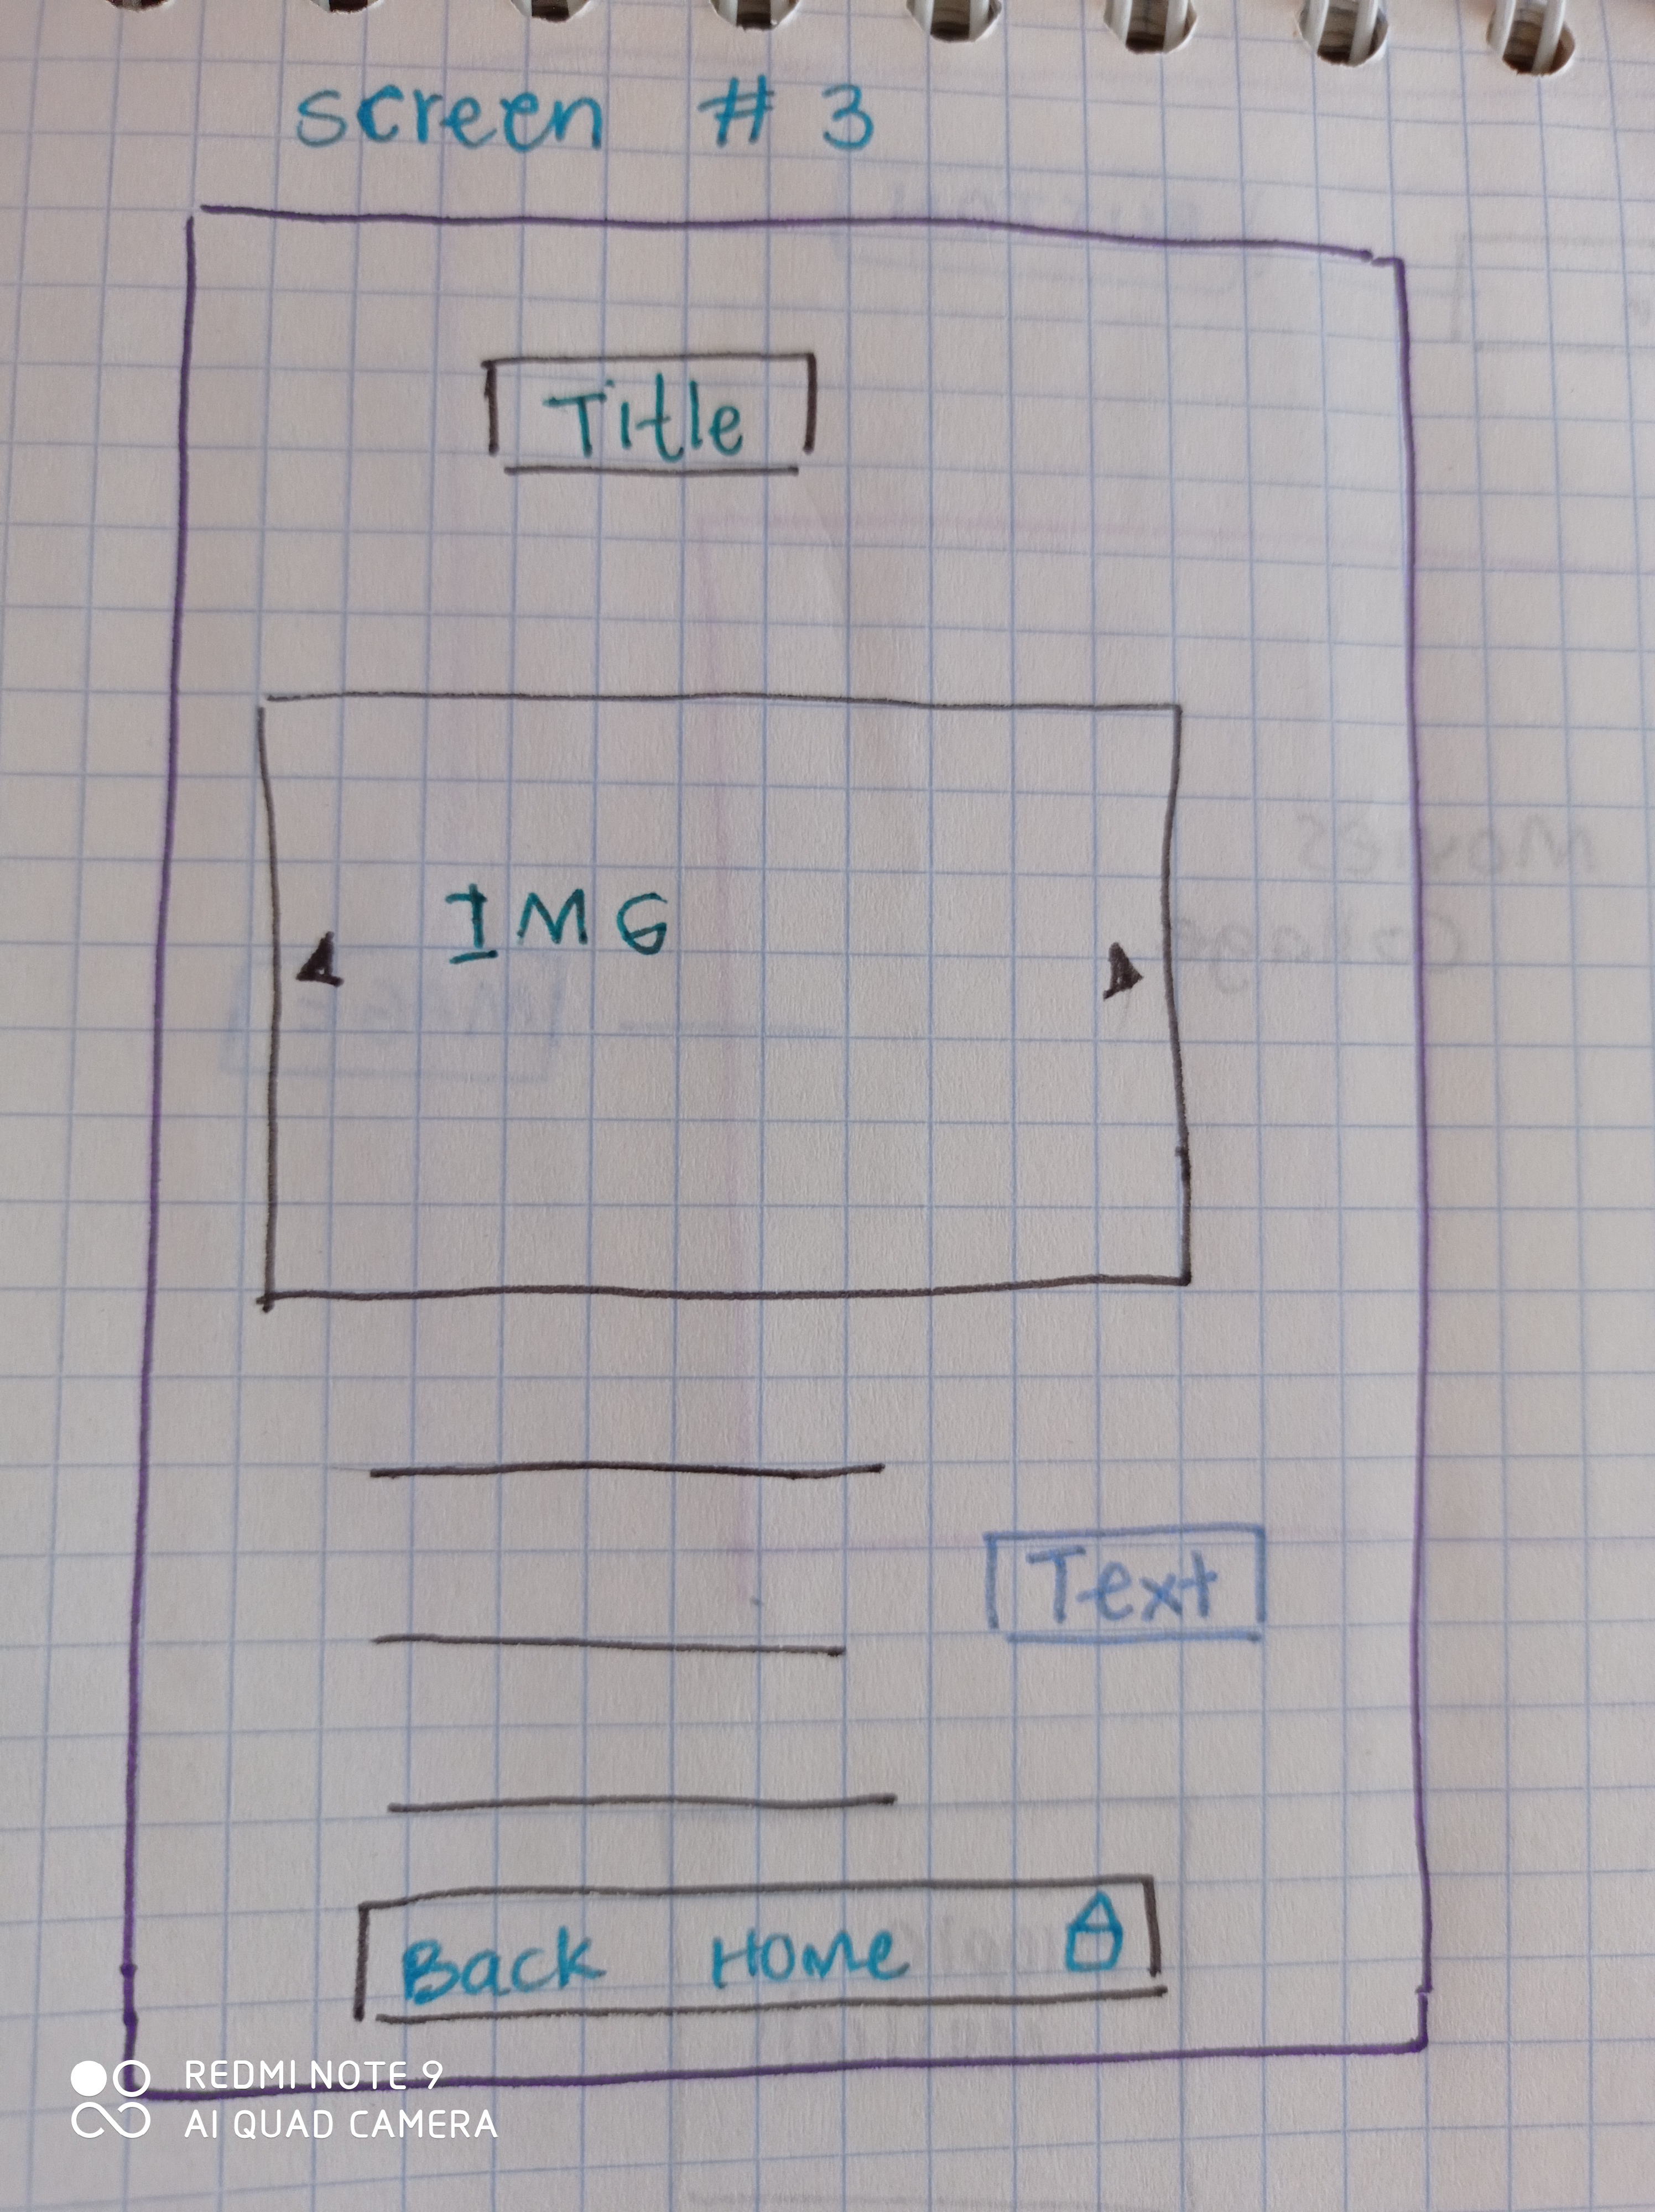 Screen # 3
Title
IMG
Text
Back Home
REDMI NOTE 9
AI QUAD CAMERA